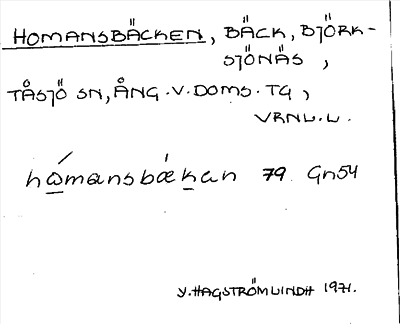 HOMANSBÄCKEN, BÄCK, BJÖRK-
SJÖNÄS,
TÅSJÖ SN, ÅNG.V.DOMS.TG,
VRNL.L.
hώmansbǽkan 79. Gn54
Y.HAGSTRÖMLINDH 1971.